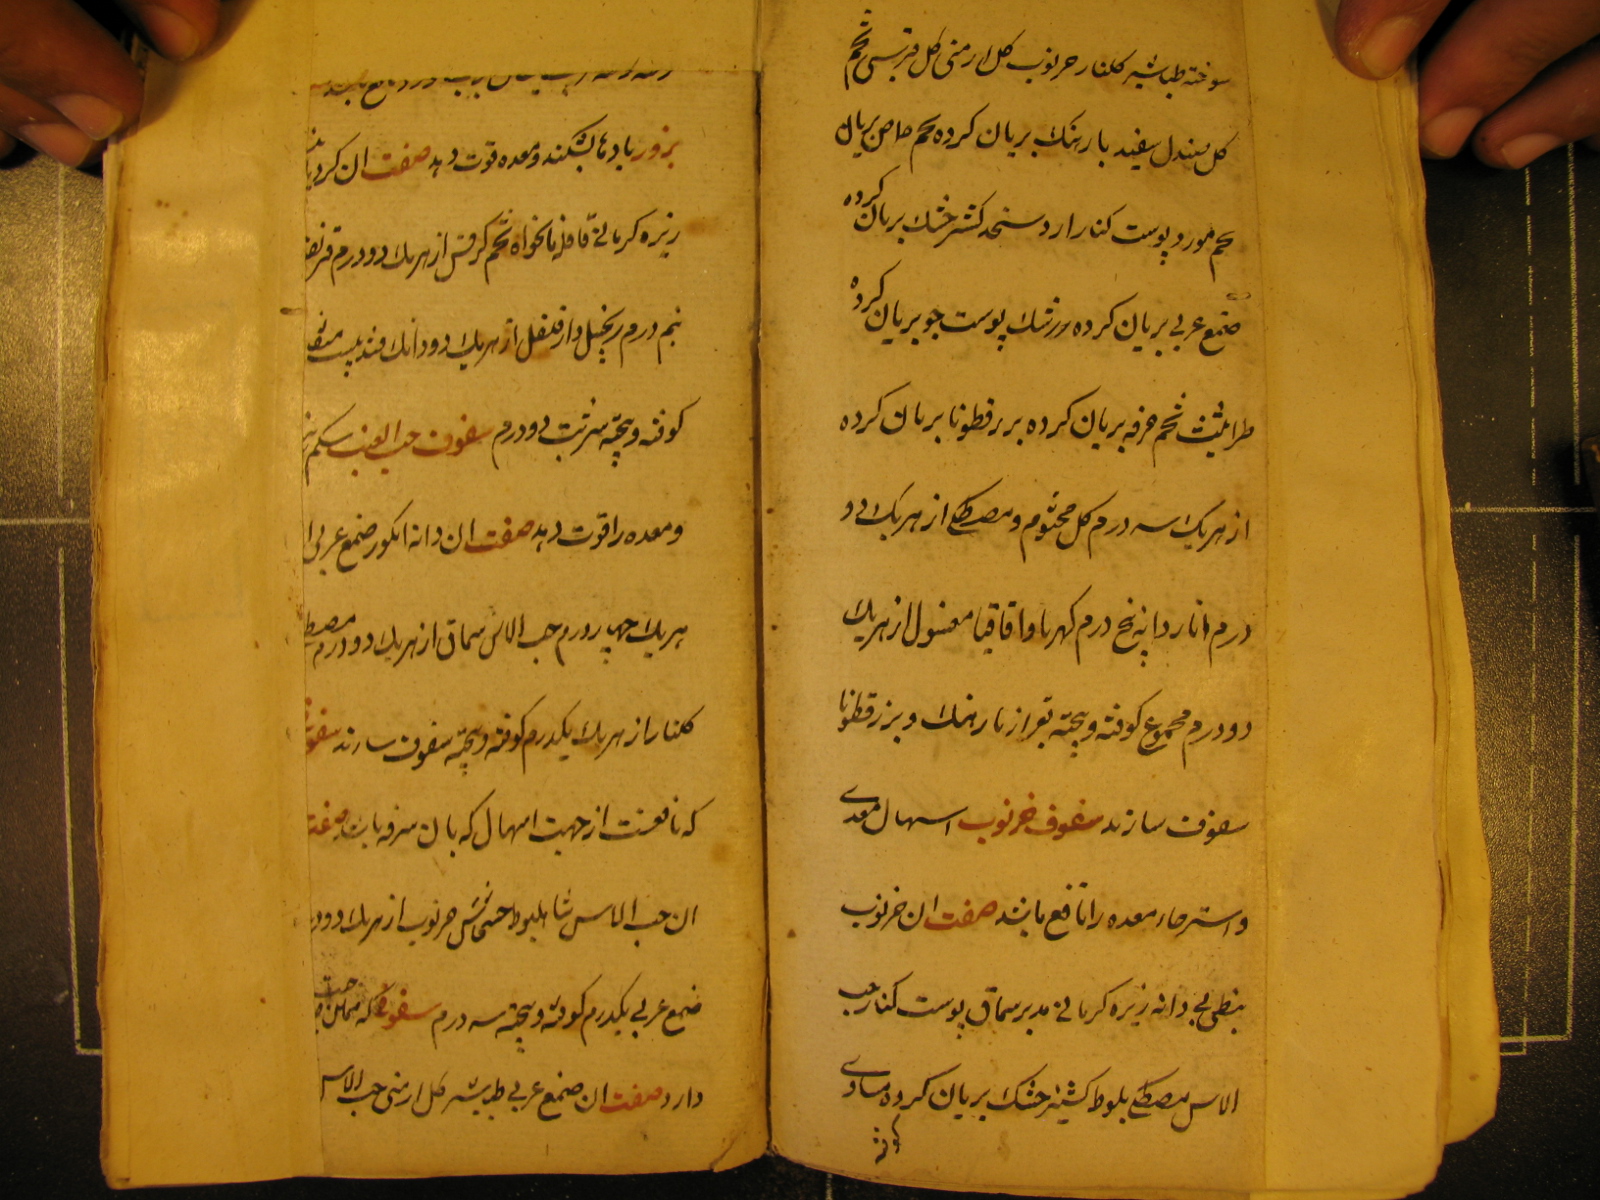 سوخته طباشیر کلنار خرنوب کل ارمنی کل قبرسی تخم
کل صندل سفید بارتنک بریان کرده تخم حماض بریان
تخم مورد پوست کنار ارد سنجد کشنیز خشک بریان کرده
صمغ عربی بریان کرده زرشک پوست جو بریان کرده
طراثیث تخم خرفه بریان کرده بزرقطونا بریان کرده
از هریک سه درم کل مختوم و مصطکی از هریک دو
درم انار دانه پنج درم کهربا و اقاقیا مغسول از هریک
دو درم مجموع کوفته و پخته بغیر از بارتنک و بزرقطونا
سفوف سازند سفوف خرنوب اسهال معدی
و استرخاء معده را نافع باشد صفت ان خرنوب
نبطی بی دانه زیره کرمانی مدبر سماق پوست کنار حب
الاس مصطکی بلوط کشنیز خشک بریان کرده مساوی
کوفته
بزور بادها بشکند و معده قوت دهد صفت ان کرویا
زیره کرمانی قاقله نانخواه تخم کرفس از هریک دو درم قرنفل
نیم درم زنجبیل دارفلفل از هریک دو دانک قند بیست مثقال
کوفته و پخته شربت دو درم سفوف حب العنب شکم
و معده را قوت دهد صفت ان دانه انکور صمغ عربی
هریک چهار درم حب الاس سماق از هریک دو درم مصطکی
کلنار از هریک یکدرم کوفته و پخته سفوف سازند سفوف
که نافعست از جهت اسهال که بان سرفه باشد صفت
ان حب الاس شاه بلوط خشخاش خرنوب از هریک دو درم
صمغ عربی یکدرم کوفته و پخته سه درم سفوفی که همان
دارد صفت ان صمغ عربی طباشیر کل ارمنی حب الاس